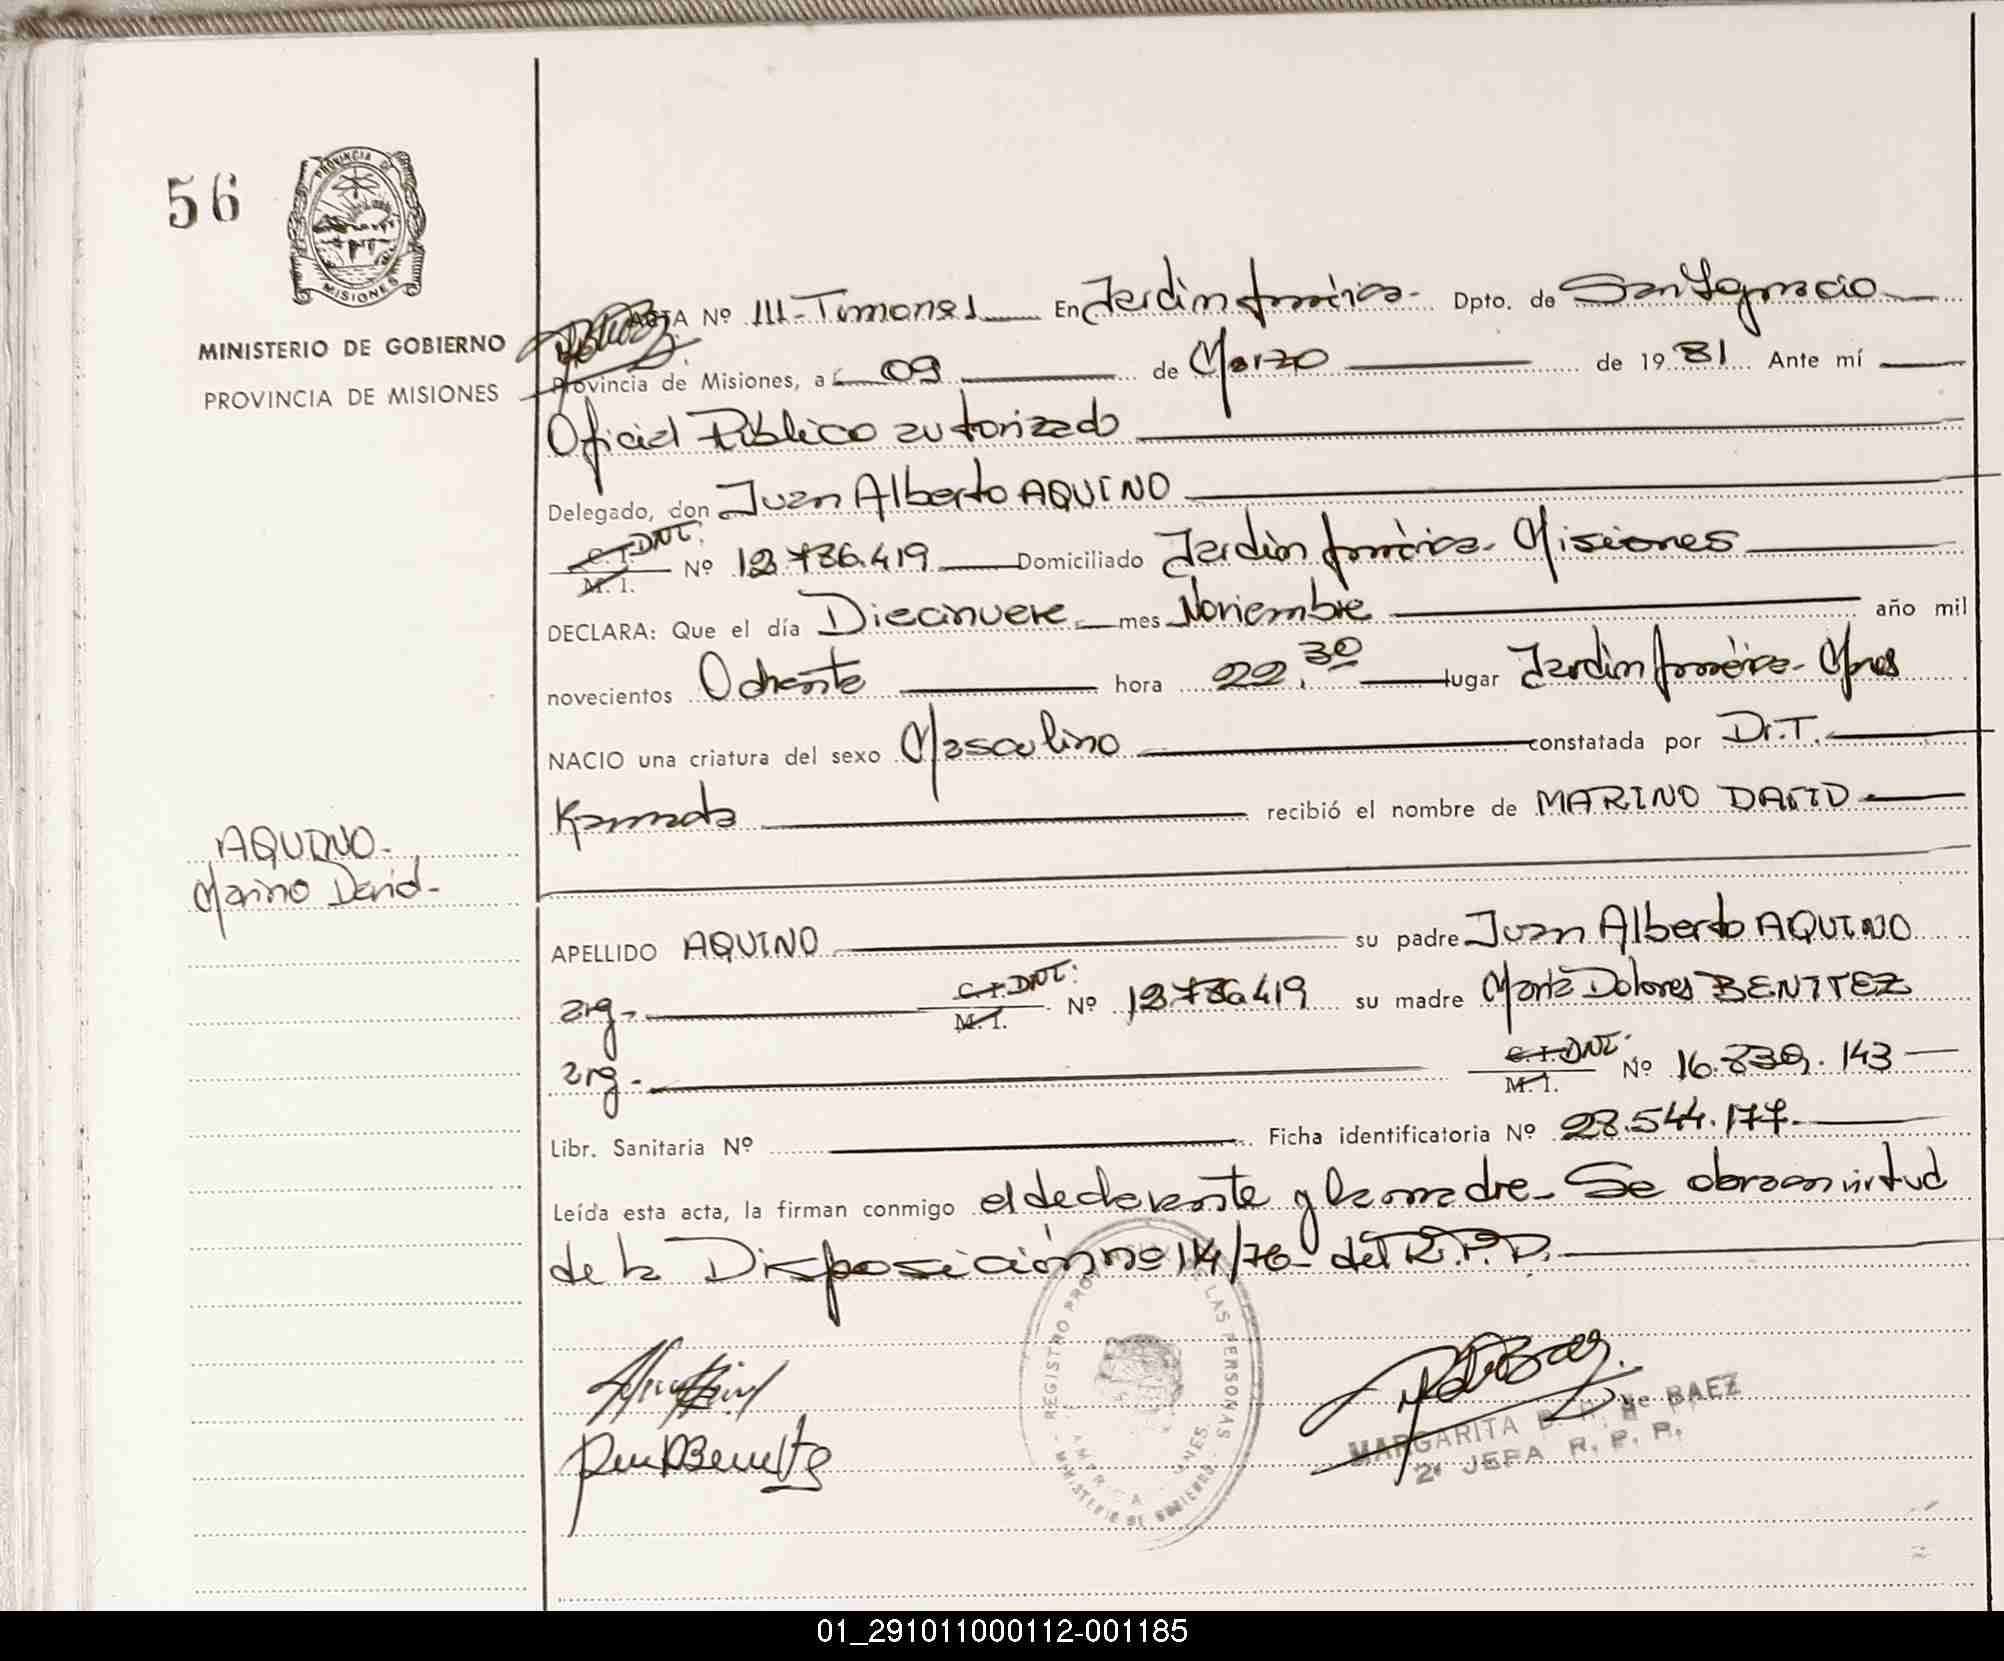 56
PROVINCIA DE
MISIONES
MINISTERIO DE GOBIERNO
PROVINCIA DE MISIONES
AQUINO-
Marino David-
ACTA Nº 111-Tomo nº 1 En Jardín América- Dpto. de San Ignacio
Provincia de Misiones, a 09 de Marzo de 1981 Ante mí
Oficial Público autorizado
Delegado, don Juan Alberto AQUINO
C. I. DNI. M. I. Nº 12.736.419 Domiciliado Jardín América- Misiones
DECLARA: Que el día Diecinueve mes Noviembre año mil
novecientos Ochenta hora 22,30 lugar Jardín América- Mnes
NACIO una criatura del sexo Masculino constatada por Dr. T.
Kamada recibió el nombre de MARINO DAVID
APELLIDO AQUINO su padre Juan Alberto AQUINO
arg.- C. I. DNI: M. I. Nº 12.736.419 su madre María Dolores BENITEZ
arg.- C. I. DNI. M. I. Nº 16.839.143
Libr. Sanitaria Nº Ficha identificatoria Nº 28.544.177.
Leída esta acta, la firman conmigo el declarante y la madre- Se obra en virtud
de la Disposición nº 114/76- del R.P.P.
REGISTRO LAS PERSONAS
MINISTERIO DE GOBIERNO
MARGARITA de BAEZ
2ª JEFA R. P. P.
01_291011000112-001185